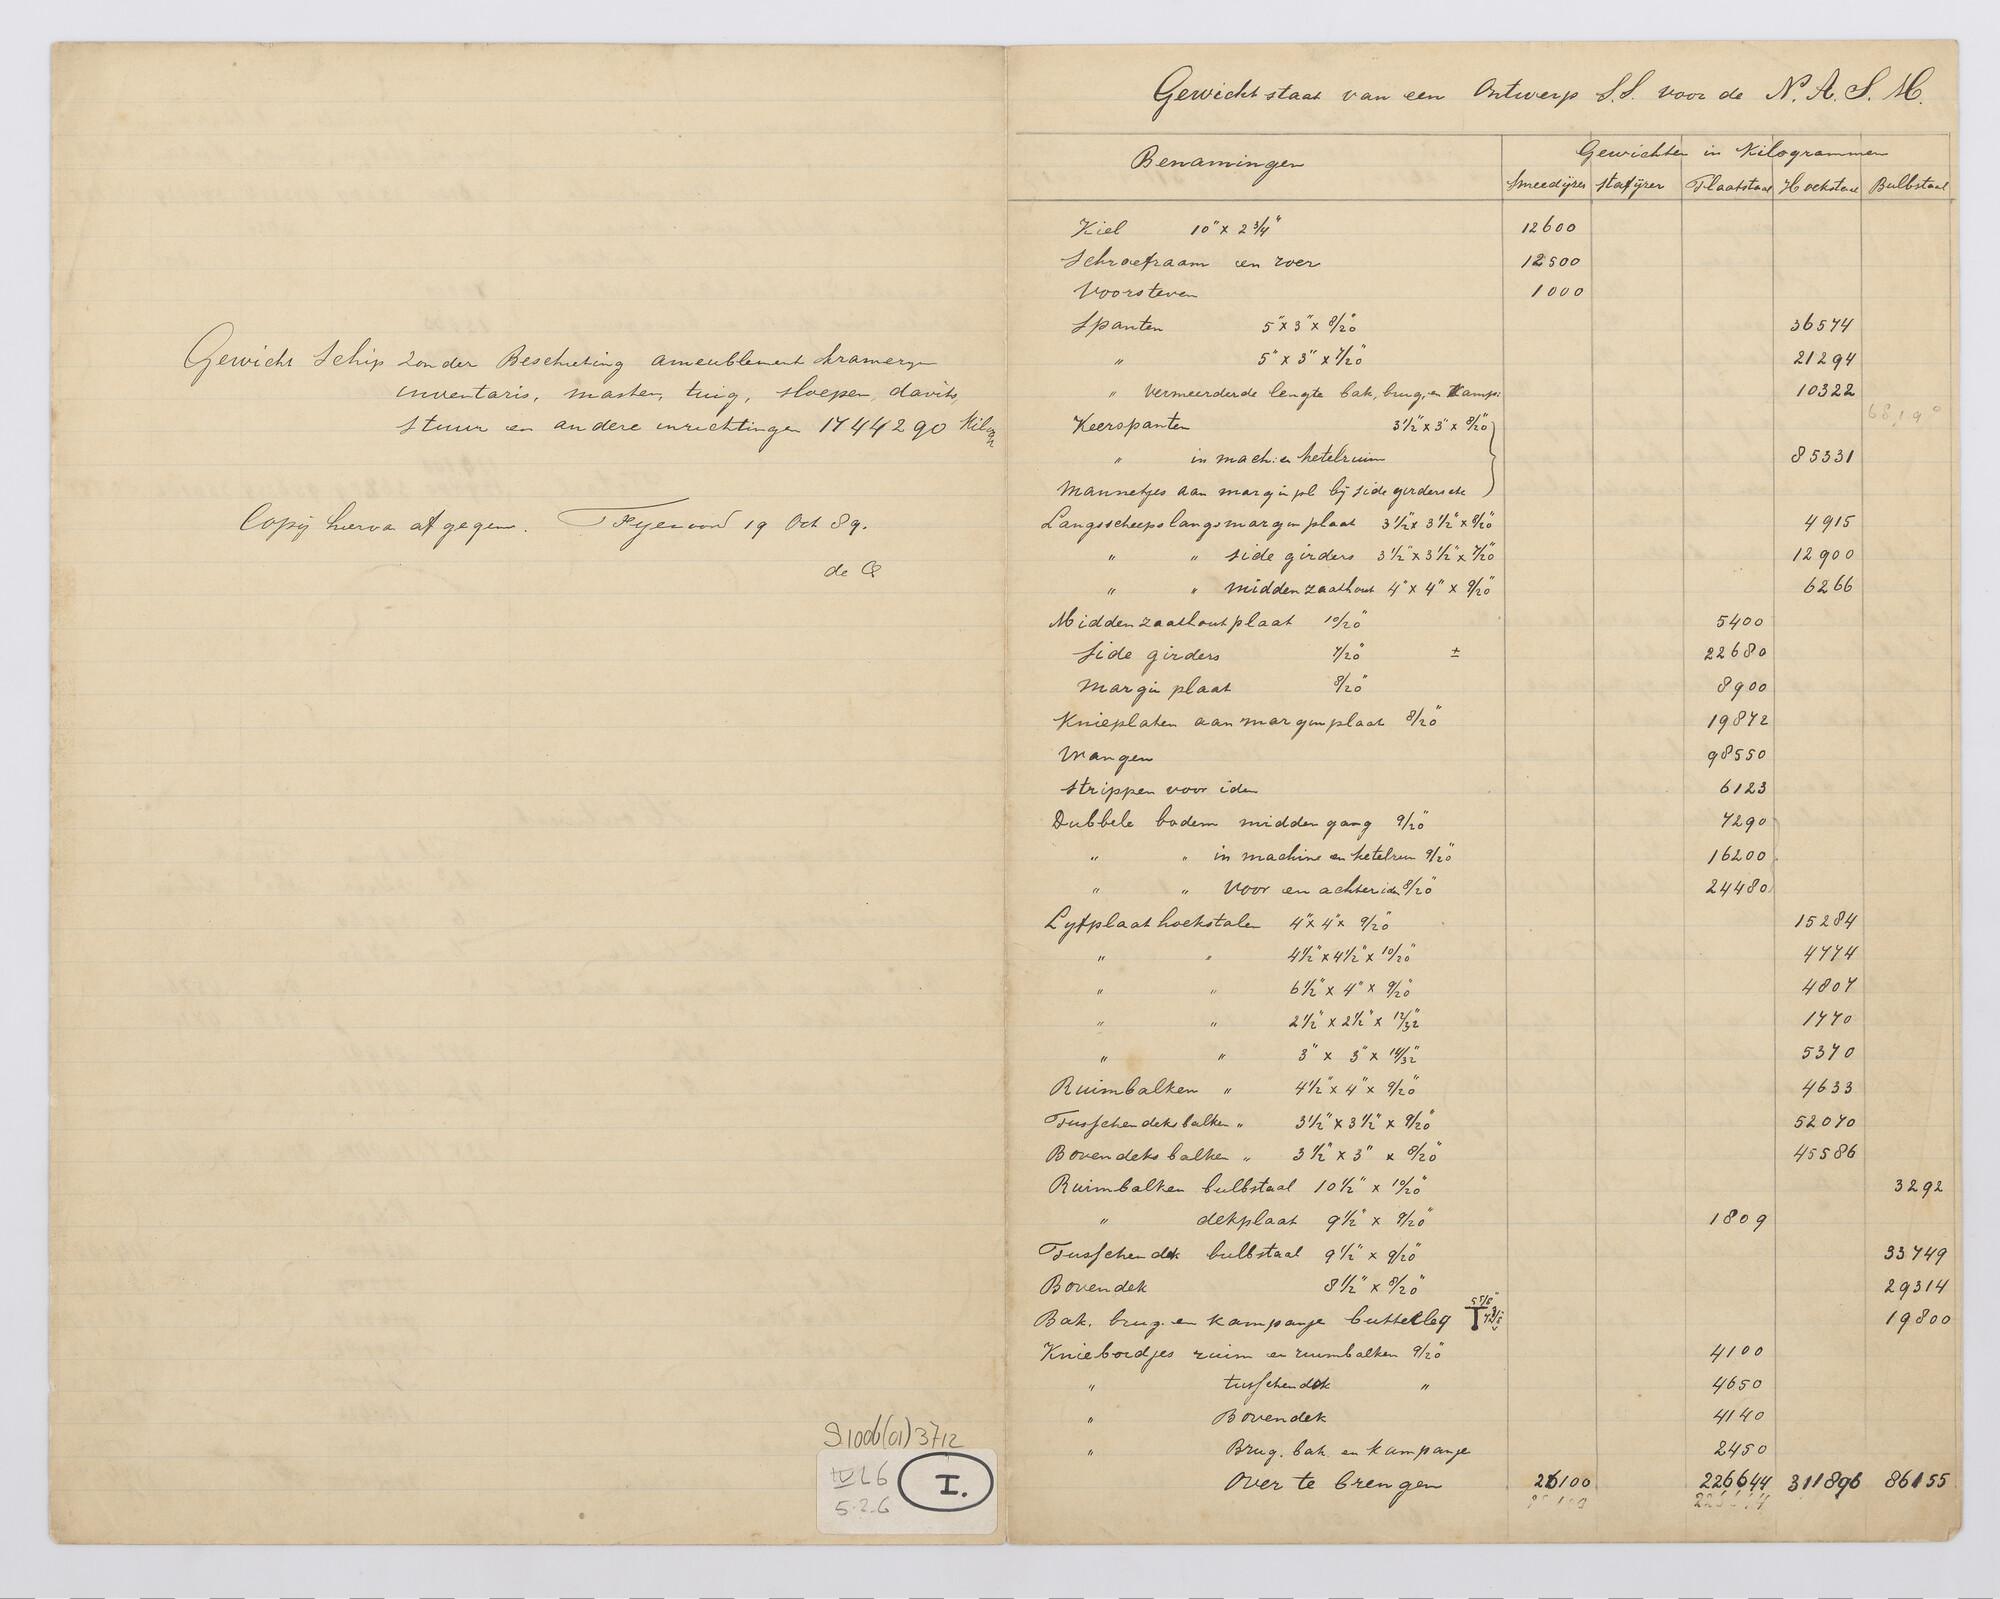 Gewicht Schip zonder Beschieting ameublement kramerijen
inventaris, masten, tuig, sloepen, davits,
stuur en andere inrichtingen 1744290 Kilogr
Copij hierva afgegeven. Fyenoord 19 Oct 89.
de Q
S1006(01)3712
IV L6
5.2.6
I.
Gewichtstaat van een Ontwerp S.S. voor de N.A.S.M.
Benamingen Gewichten in Kilogrammen
Smeedijzer Stafijzer Plaatstaal Hoekstaal Bulbstaal
Kiel 10" x 2 3/4" 12600
Schroefraam en roer 12500
Voorsteven 1000
Spanten 5" x 3" x 8/20" 36574
" 5" x 3" x 7/20" 21294
" vermeerderde lengte bak, brug, en Kamp: 10322
Keerspanten 3 1/2" x 3" x 8/20"
" in mach: en ketelruim 85331
Mannetjes aan margin pl bij side girders etc
Langsscheeps langs margin plaat 3 1/2" x 3 1/2" x 8/20" 4915
" " side girders 3 1/2" x 3 1/2" x 7/20" 12900
" " midden zaathout 4" x 4" x 9/20" 6266
Midden zaathout plaat 10/20" 5400
Side girders 7/20" ± 22680
Margin plaat 8/20" 8900
Knieplaten aan marginplaat 8/20" 19872
Wrangen 98550
Strippen voor idem 6123
Dubbele bodem midden gang 9/20" 7290
" " in machine en ketelruim 9/20" 16200
" " voor en achter idm 8/20" 24480
Lyfplaat hoekstalen 4" x 4" x 9/20" 15284
" " 4 1/2" x 4 1/2" x 10/20" 4774
" " 6 1/2" x 4" x 9/20" 4807
" " 2 1/2" x 2 1/2" x 12/32" 1770
" " 3" x 3" x 14/32" 5370
Ruimbalken " 4 1/2" x 4" x 9/20" 4633
Tusschendeksbalken " 3 1/2" x 3 1/2" x 9/20" 52070
Bovendeks balken " 3 1/2" x 3" x 8/20" 45586
Ruimbalken bulbstaal 10 1/2" x 10/20" 3292
" dekplaat 9 1/2" x 9/20" 1809
Tusschendek bulbstaal 9 1/2" x 9/20" 33749
Bovendek 8 1/2" x 8/20" 29314
Bak. brug. en kampanje butterleg 19800
Kniebordjes ruim en ruimbalken 9/20" 4100
" tusschendek " 4650
" Bovendek 4140
" Brug. bak en kampanje 2450
Over te brengen 26100 226644 311896 86155